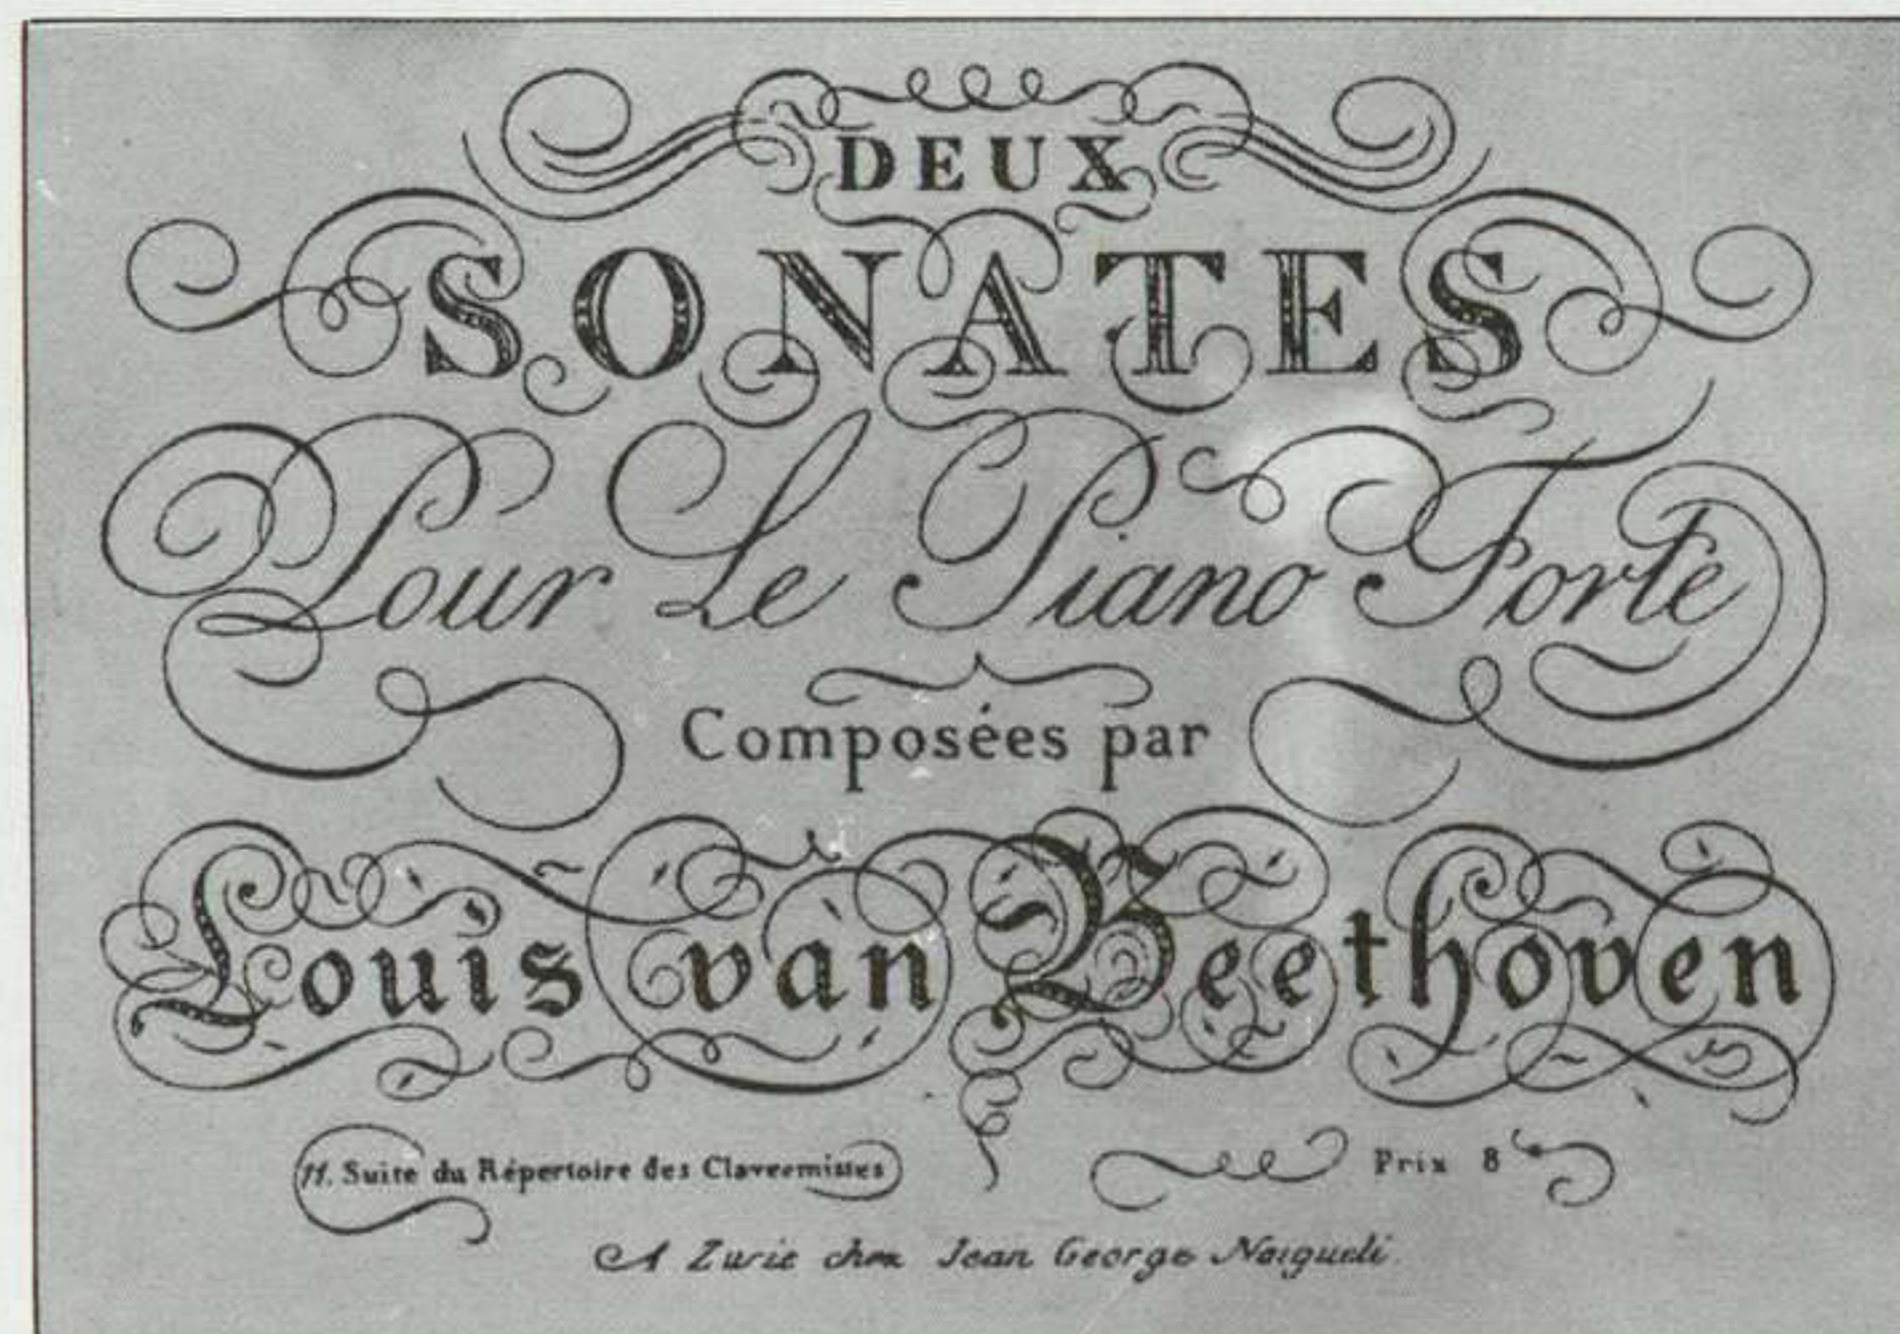 DEUX
SONATES
Pour Le Piano Forte
Composées par
Louis van Beethoven
11. Suite du Répertoire des Clavecinistes
Prix 8
A Zuric chez Jean George Naigueli